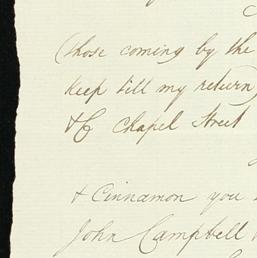 those coming by the
keep till my return
&C Chapel Street
& Cinnamon you
John Campbell